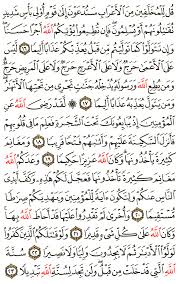 قُل لِّلْمُخَلَّفِينَ مِنَ الْأَعْرَابِ سَتُدْعَوْنَ إِلَىٰ قَوْمٍ أُولِي بَأْسٍ شَدِيدٍ
تُقَاتِلُونَهُمْ أَوْ يُسْلِمُونَ ۖ فَإِن تُطِيعُوا يُؤْتِكُمُ اللَّهُ أَجْرًا حَسَنًا ۖ
وَإِن تَتَوَلَّوْا كَمَا تَوَلَّيْتُم مِّن قَبْلُ يُعَذِّبْكُمْ عَذَابًا أَلِيمًا ١٦ لَّيْسَ
عَلَى الْأَعْمَىٰ حَرَجٌ وَلَا عَلَى الْأَعْرَجِ حَرَجٌ وَلَا عَلَى الْمَرِيضِ حَرَجٌ ۗ
وَمَن يُطِعِ اللَّهَ وَرَسُولَهُ يُدْخِلْهُ جَنَّاتٍ تَجْرِي مِن تَحْتِهَا الْأَنْهَارُ ۖ
وَمَن يَتَوَلَّ يُعَذِّبْهُ عَذَابًا أَلِيمًا ١٧ ۞ لَّقَدْ رَضِيَ اللَّهُ عَنِ
الْمُؤْمِنِينَ إِذْ يُبَايِعُونَكَ تَحْتَ الشَّجَرَةِ فَعَلِمَ مَا فِي قُلُوبِهِمْ
فَأَنزَلَ السَّكِينَةَ عَلَيْهِمْ وَأَثَابَهُمْ فَتْحًا قَرِيبًا ١٨ وَمَغَانِمَ
كَثِيرَةً يَأْخُذُونَهَا ۗ وَكَانَ اللَّهُ عَزِيزًا حَكِيمًا ١٩ وَعَدَكُمُ اللَّهُ
مَغَانِمَ كَثِيرَةً تَأْخُذُونَهَا فَعَجَّلَ لَكُمْ هَٰذِهِ وَكَفَّ أَيْدِيَ
النَّاسِ عَنكُمْ وَلِتَكُونَ آيَةً لِّلْمُؤْمِنِينَ وَيَهْدِيَكُمْ صِرَاطًا
مُّسْتَقِيمًا ٢٠ وَأُخْرَىٰ لَمْ تَقْدِرُوا عَلَيْهَا قَدْ أَحَاطَ اللَّهُ بِهَا ۚ
وَكَانَ اللَّهُ عَلَىٰ كُلِّ شَيْءٍ قَدِيرًا ٢١ وَلَوْ قَاتَلَكُمُ الَّذِينَ كَفَرُوا
لَوَلَّوُا الْأَدْبَارَ ثُمَّ لَا يَجِدُونَ وَلِيًّا وَلَا نَصِيرًا ٢٢ سُنَّةَ
اللَّهِ الَّتِي قَدْ خَلَتْ مِن قَبْلُ ۖ وَلَن تَجِدَ لِسُنَّةِ اللَّهِ تَبْدِيلًا ٢٣